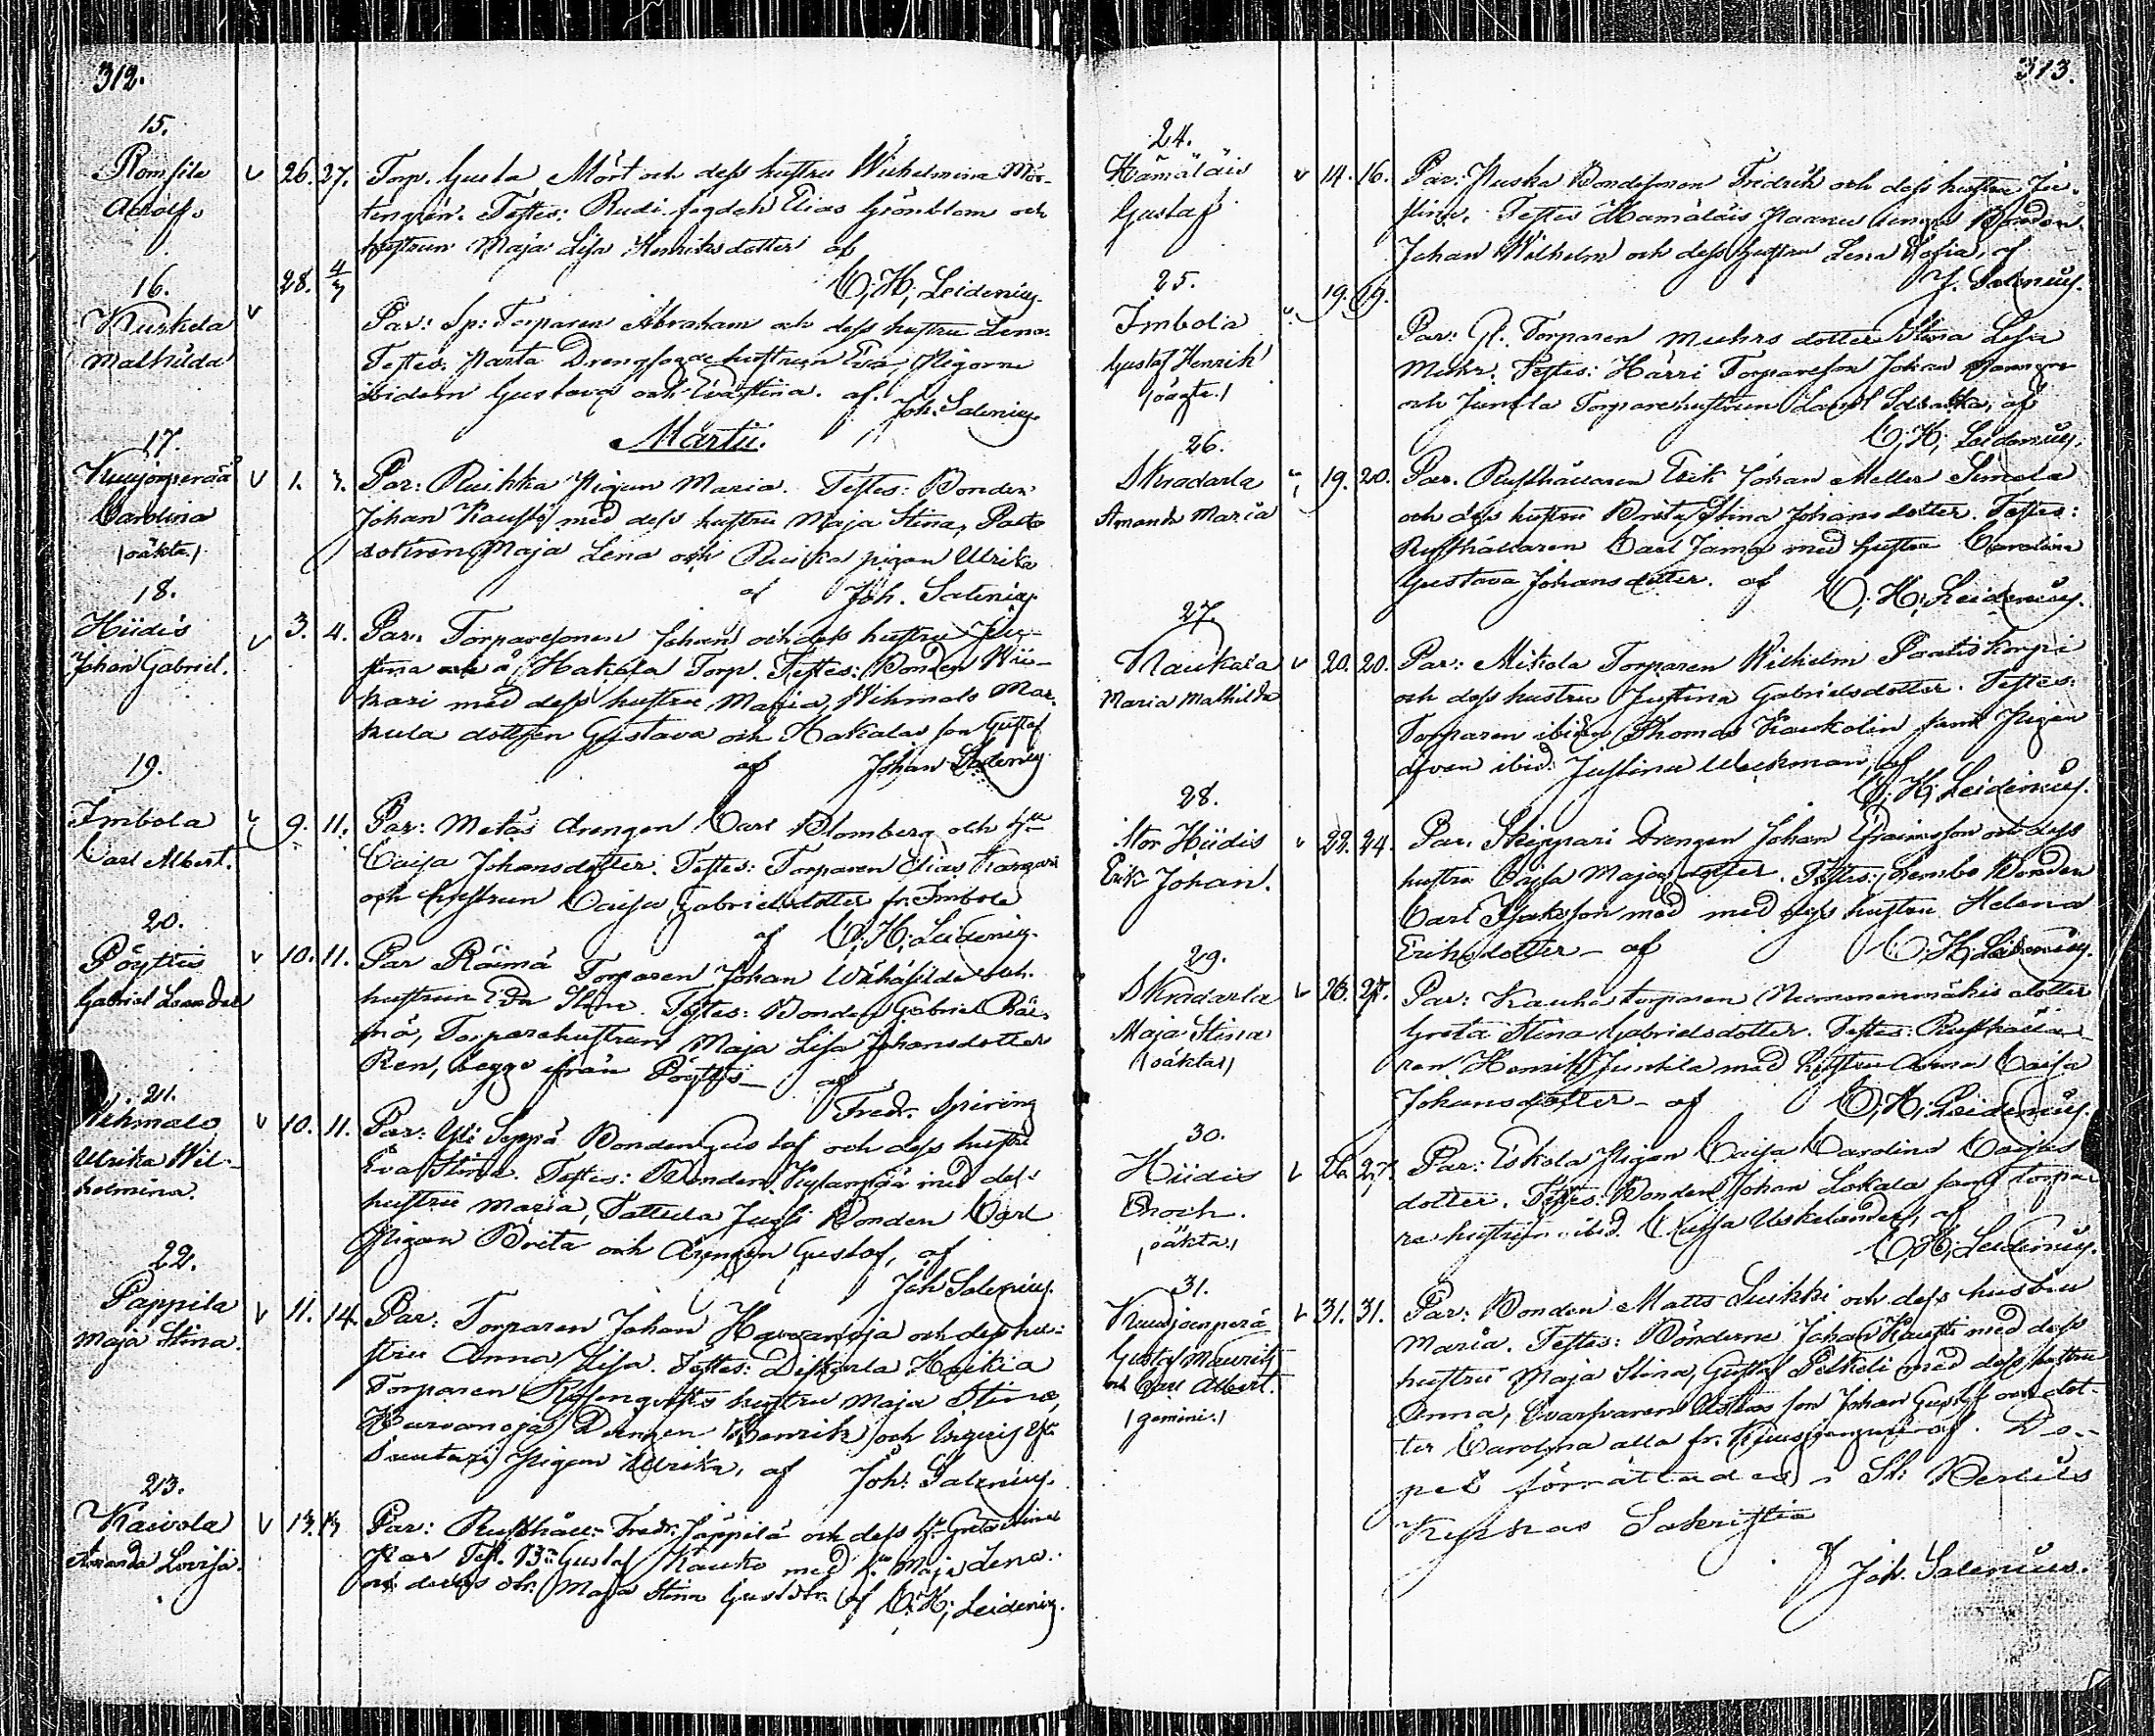 312.
15.
Romsila
Adolf.
26. 27. Torp. Gusta Mört och dess hustru Wilhelmina Mör-
tengren. Testes: Rudi fogden Elias Grönblom och
hustrun Maja Lisa Henriksdotter af
C: H: Leidenius.
16.
Kuskela
Mathilda
28. 4/3
Par: Sp: Torparen Abraham och dess hustru Lena.
Testes: Drengen hustrun Eva, Pigorne
ibidem Gustava och Eva Stina. af.
Joh. Salenius.
Martii.
17.
Kuujoenperää
Carolina
/oäkta./
1. 3. Par: Ruihka Pigan Maria. Testes: Bonden
Johan Kausti med dess hustru Maja Stina,
dottren Maja Lena och pigan Ulrika
af Joh. Salenius
18.
Hiidis
Johan Gabriel.
3. 4. Par: Torparesonen Johan och dess hustru Ju-
stina å Hakala Torp. Testes: Bonden Wii-
kari med dess hustru Maria, Wehmals Mar-
kula dottren Gustava och Hakalas son Gustaf
af Johan Salenius
19.
Imbola
Carl Albert.
9. 11. Par: Metäs drengen Carl Blomberg och hu
Caisa Johansdotter. Testes: Torparen Elias Kangari
och hustrun Caisa Gabrielsdotter fr. Imbola
af C: H: Leidenius.
20.
Pöytis
Gabriel Leander
10. 11. Par Räimä Torparen Johan Wähäsilda och
hustrun Eva Stina. Testes: Bonden Gabriel Räi-
mä, Torparehustrun Maja Lisa Johansdotter
Ren, begge ifrån Pöytis – af
Fredr. Spiring
21.
Wehmals
Ulrika Wil-
helmina.
10. 11. Par: Yli Seppä Bonden Gustaf och dess hustru
Eva Stina. Testes: Bonden Kylanpää med dess
hustru Maria, Tattula Jugli Bonden Carl
Pigan Brita och drengen Gustaf, af
Joh Salenius.
22.
Pappila
Maja Stina.
11. 14. Par: Torparen Johan Harvanoja och dess hu-
stru Anna Lisa. Testes: Diskarla Heikia
Torparen Rosenqvists hustru Maja Stina,
Harvanojas Drengen Henrik och
Suutari Pigan Ulrika, af Joh. Salenius.
23.
Kaivola
Amanda Lovisa.
13. 13 Par: Rusthåll. Fredr. Jäppilä och dess hu Greta Stina
Test. Bn Gustaf Kauko med hu Maja Lena.
deras dtr. Maja Stina Gust dtr. af C: H: Leidenius.
313.
24.
Hämäläis
Gustaf
14. 16. Par. Puska Bondesonen Fredrik och dess hustru Ju-
stina. Testes Hämäläis Paavus unga Bonden
Johan Wilhelm och dess hustru Lena Sofia, af
J. Salenius.
25.
Imbola
Gustaf Henrik
/oägte./
19. 19.
Par: Gl. Torparen Muhrs dotter Stina Lisa
Muhr. Testes: Härri Torparesson Johan
och Junola Torparehustrun, af
C: H: Leidenius.
26.
Skradarla
Amanda Maria
19. 20. Par. Rusthållaren Erik Johan Meller Simola
och dess hustru Brita Stina Johansdotter. Testes:
Rusthållaren Carl Jama med hustru Carolina
Gustava Johansdotter. af C: H: Leidenius.
27.
Naukala
Maria Mathilda
20. 20. Par: Mikola Torparen Wilhelm Paatiskorpi
och dess hustru Justina Gabrielsdotter. Testes:
Torparen ibidem Thomas Kaukolin samt Pigan
även ibid: Justina Weckman, af
C: H: Leidenius.
28.
Stor Hiidis
Erik Johan.
22. 24. Par. Skippari Drengen Johan Efraimsson och dess
hustru Cajsa Majas dotter. Testes: Lembo Bonden
Carl Isaksson med med dess hustru Helena
Eriksdotter – af C: H: Leidenius.
29.
Skradarla
Maja Stina
/oäkta/
26. 27. Par: Kauko torparen Nummenmäkis dotter
Greta Stina Gabrielsdotter. Testes: Rusthålla-
ren Henrik Junkla med hustru Anna Caisa
Johansdotter – af C: H: Leidenius.
30.
Hiidis
Enoch.
/oäkta./
26. 27. Par: Eskola Pigan Caisa Carolina Caisas
dotter. Testes: Bonden Johan Lokala samt torpa-
re hustrun ibid. Caisa Uskelander, af
C: H: Leidenius.
31.
Kuujoenperä
Gustaf Mauritz
och Carl Albert.
/gemini./
31. 31. Par: Bonden Matts Luikki och dess hustru
Maria. Testes: Bönderne Johan Kausti med dess
hustru Maja Stina, Gustaf Pelkeli med dess hustru
Anna, Svarfvaren son Johan Gustaf och dot-
ter Carolina alla fr. Kuujoenperä. Do-
pet förrättades i St: Bertils
Kyrkas Sakristia
af Joh. Salenius.